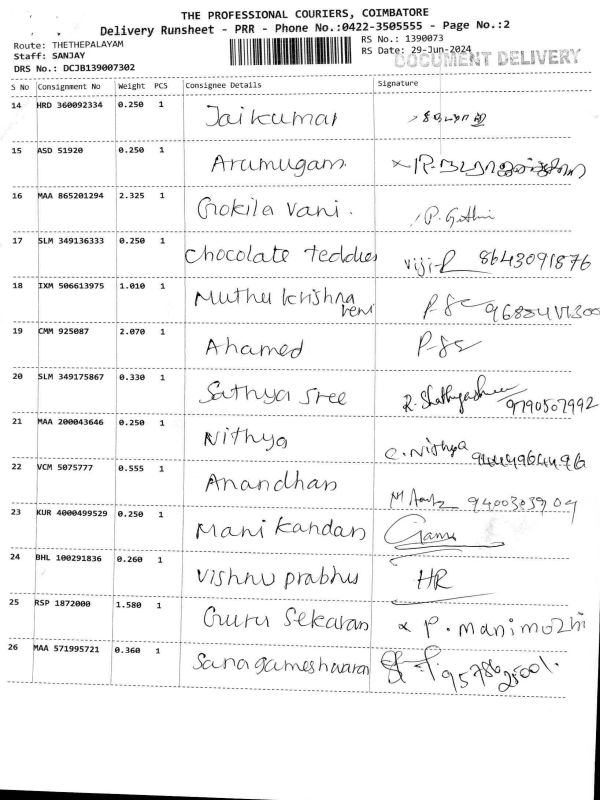 THE PROFESSIONAL COURIERS, COIMBATORE
Delivery Runsheet - PRR - Phone No.:0422-3505555 - Page No.:2
Route: THETHEPALAYAM
Staff: SANJAY
DRS No.: DCJB139007302
RS No.: 1390073
RS Date: 29-Jun-2024
DOCUMENT DELIVERY
S No Consignment No Weight PCS Consignee Details Signature
14 HRD 360092334 0.250 1 Jaikumar
15 ASD 51920 0.250 1 Arumugam
16 MAA 865201294 2.325 1 Gokila vani. P. Gothi
17 SLM 349136333 0.250 1 chocolate teddies Viji-P 8643091876
18 IXM 506613975 1.010 1 Muthu krishna veni
19 CMM 925087 2.070 1 Ahamed
20 SLM 349175867 0.330 1 Sathya sree 9790507992
21 MAA 200043646 0.250 1 Nithya C. Nithya
22 VCM 5075777 0.555 1 Anandhan
23 KUR 4000499529 0.250 1 Mani kandan
24 BHL 100291836 0.260 1 Vishnu prabhu HR
25 RSP 1872000 1.580 1 Guru Sekaran x P. manimozhi
26 MAA 571995721 0.360 1 Sanagameshwaran